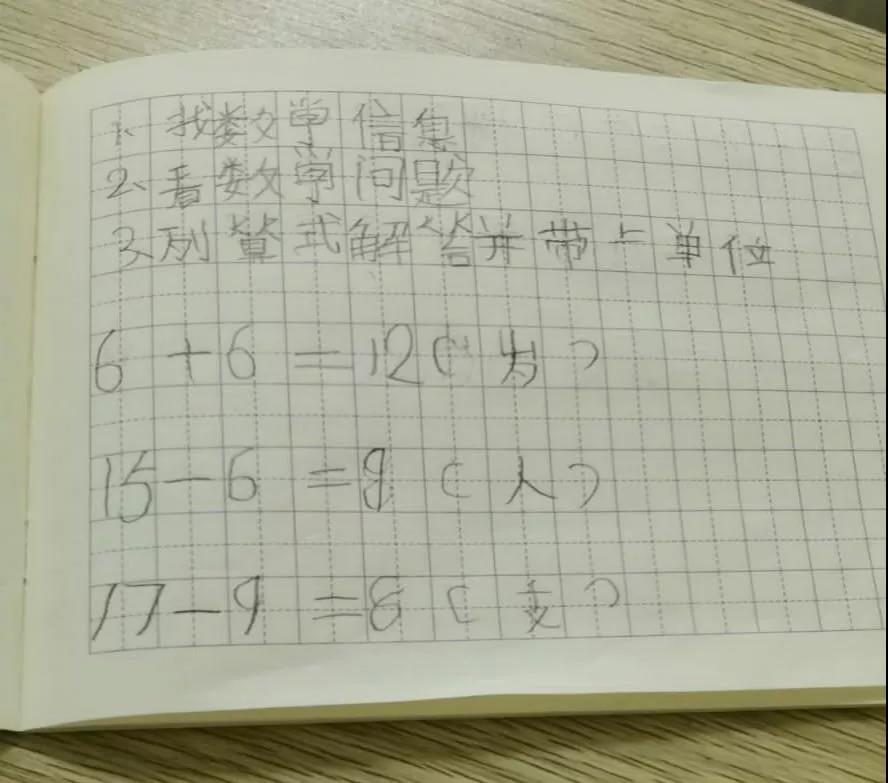 1、找数单信集
2、看数学问题
3、列算式解答并带上单位
6+6=12(岁)
15-6=9(人)
17-9=8(支)